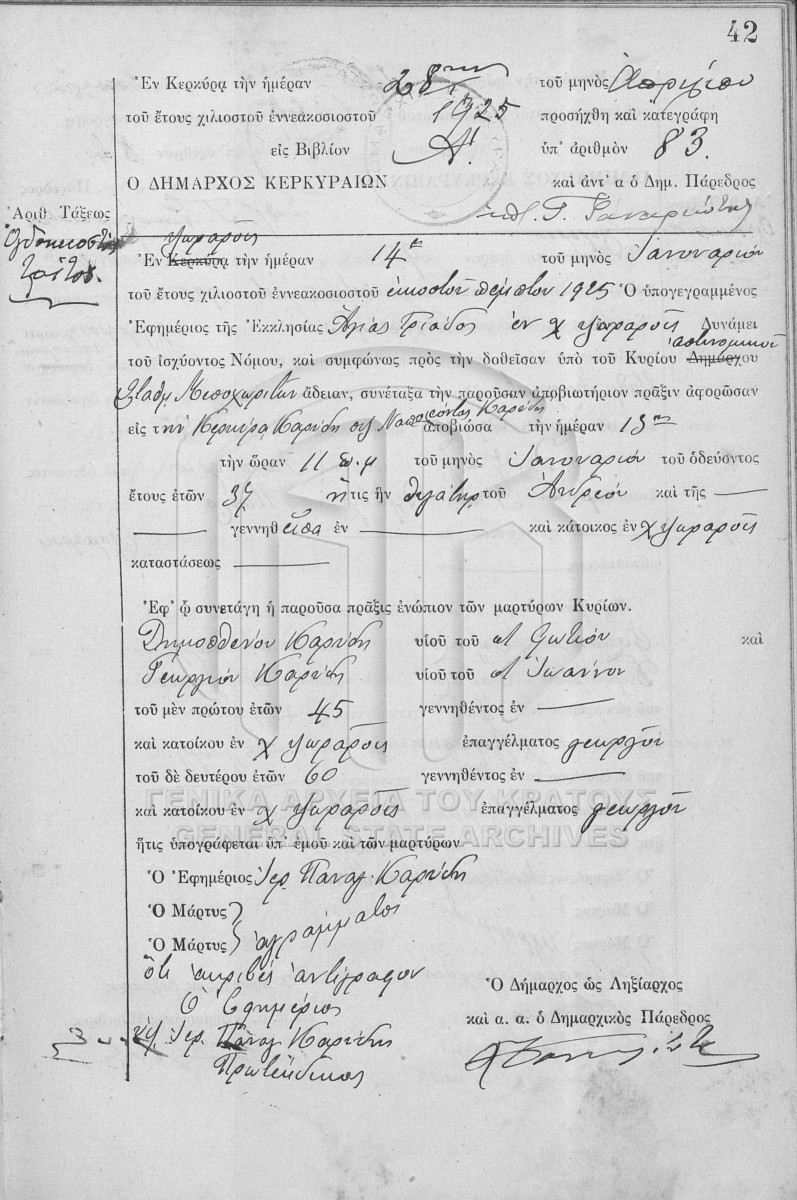 42
Ἐν Κερκύρᾳ τὴν ἡμέραν 28ην τοῦ μηνὸς Ἀπριλίου
τοῦ ἔτους χιλιοστοῦ ἐννεακοσιοστοῦ 1925 προσήχθη καὶ κατεγράφη
εἰς Βιβλίον Α' ὑπ' ἀριθμὸν 83.
Ο ΔΗΜΑΡΧΟΣ ΚΕΡΚΥΡΑΙΩΝ καὶ ἀντ' α ὁ Δημ. Πάρεδρος
Ἀριθ. Τάξεως
Ὀγδοηκοστὸς
τρίτος.
Ψαραρούς
Ἐν Κερκύρᾳ τὴν ἡμέραν 14ην τοῦ μηνὸς Ἰανουαρίου
τοῦ ἔτους χιλιοστοῦ ἐννεακοσιοστοῦ εἰκοστοῦ πέμπτου 1925 Ὁ ὑπογεγραμμένος
Ἐφημέριος τῆς Ἐκκλησίας Ἁγίας Τριάδος ἐν χ Ψαραρούς Δυνάμει
τοῦ ἰσχύοντος Νόμου, καὶ συμφώνως πρὸς τὴν δοθεῖσαν ὑπὸ τοῦ Κυρίου Δημάρχου ἀστυνομικοῦ
Σταθμ. Μεσοχωρίτων ἄδειαν, συνέταξα τὴν παροῦσαν ἀποβιωτήριον πρᾶξιν ἀφορῶσαν
εἰς τὴν Καρύδη Καρύδη ἀποβιώσα τὴν ἡμέραν 13ην
τὴν ὥραν 11 π.μ τοῦ μηνὸς Ἰανουαρίου τοῦ ὁδεύοντος
ἔτους ἐτῶν 37 ἥτις ἦν θυγάτηρ τοῦ Ἀνδρέου καὶ τῆς —
— γεννηθεῖσα ἐν — καὶ κάτοικος ἐν χ Ψαραρούς
καταστάσεως —
Ἐφ' ᾧ συνετάγη ἡ παροῦσα πρᾶξις ἐνώπιον τῶν μαρτύρων Κυρίων.
Δημοσθένου Καρύδη υἱοῦ τοῦ Φωτίου καὶ
Γεωργίου Καρύδη υἱοῦ τοῦ Ἰωάννου
τοῦ μὲν πρώτου ἐτῶν 45 γεννηθέντος ἐν —
καὶ κατοίκου ἐν χ Ψαραρούς ἐπαγγέλματος γεωργοῦ
τοῦ δὲ δευτέρου ἐτῶν 60 γεννηθέντος ἐν —
καὶ κατοίκου ἐν χ Ψαραρούς ἐπαγγέλματος γεωργοῦ
ΓΕΝΙΚΑ ΑΡΧΕΙΑ ΤΟΥ ΚΡΑΤΟΥΣ
GENERAL STATE ARCHIVES
ἥτις ὑπογράφεται ὑπ' ἐμοῦ καὶ τῶν μαρτύρων
Ὁ Ἐφημέριος Ἱερ. Παναγ. Καρύδης
Ὁ Μάρτυς
Ὁ Μάρτυς ἀγράμματοι
ὅτι ἀκριβὲς ἀντίγραφον
Ὁ Ἐφημέριος
Ἱερ. Παναγ Καρύδης
Πρωτέκδικος
Ὁ Δήμαρχος ὡς Ληξίαρχος
καὶ α. α. ὁ Δημαρχικὸς Πάρεδρος